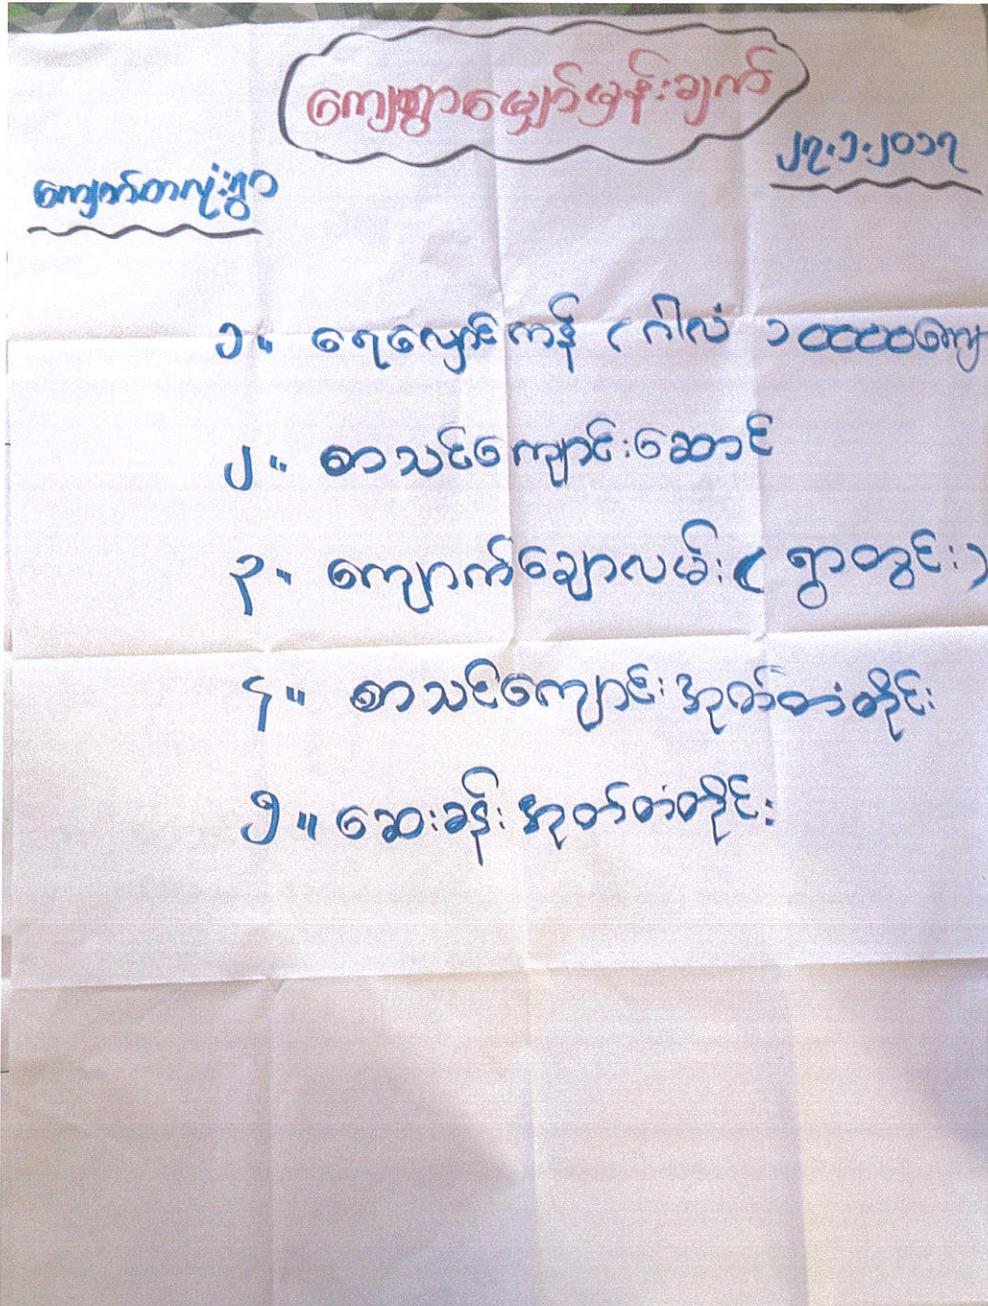 ကျေးရွာမျှော်မှန်းချက်
၂၇.၁.၂၀၁၇
ကျောက်တလုံးရွာ
၁။ ရေလှောင်ကန် ( ဂါလံ ၁၀၀၀၀ကျေ
၂။ စာသင်ကျောင်းဆောင်
၃။ ကျောက်ချောလမ်း ( ရွာတွင်း )
၄။ စာသင်ကျောင်း အုတ်တံတိုင်း
၅။ ဆေးခန်း အုတ်တံတိုင်း